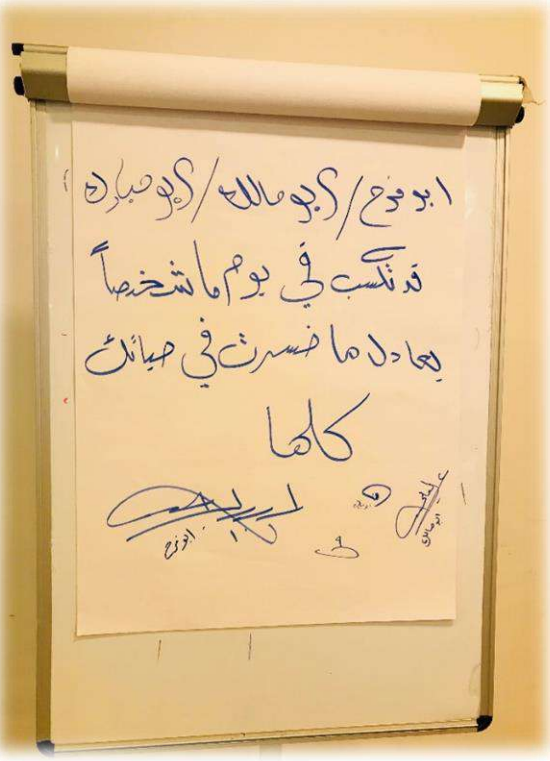 ابو فرح / أبو مالك / أبو مبارك
قد تكسب في يوم ما شخصاً
يعادل ما خسرت في حياتك
كلها
ابو فرح